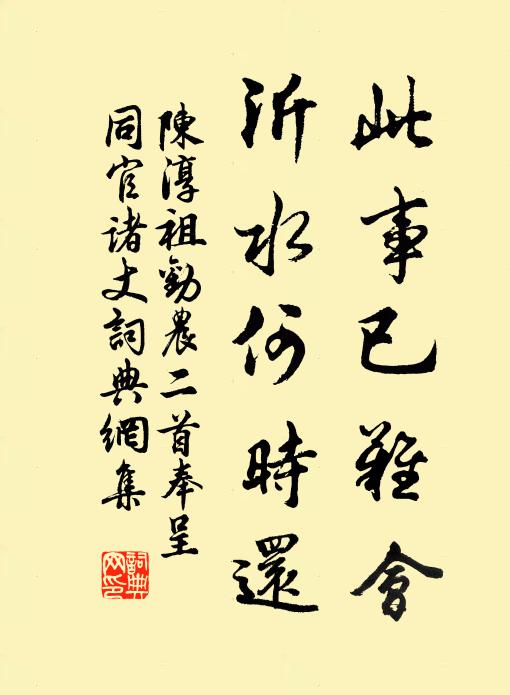 此事已難會
沂水何時還
陳淳祖勸農二首奉呈
同官诸丈詞典網集
詞典
网印